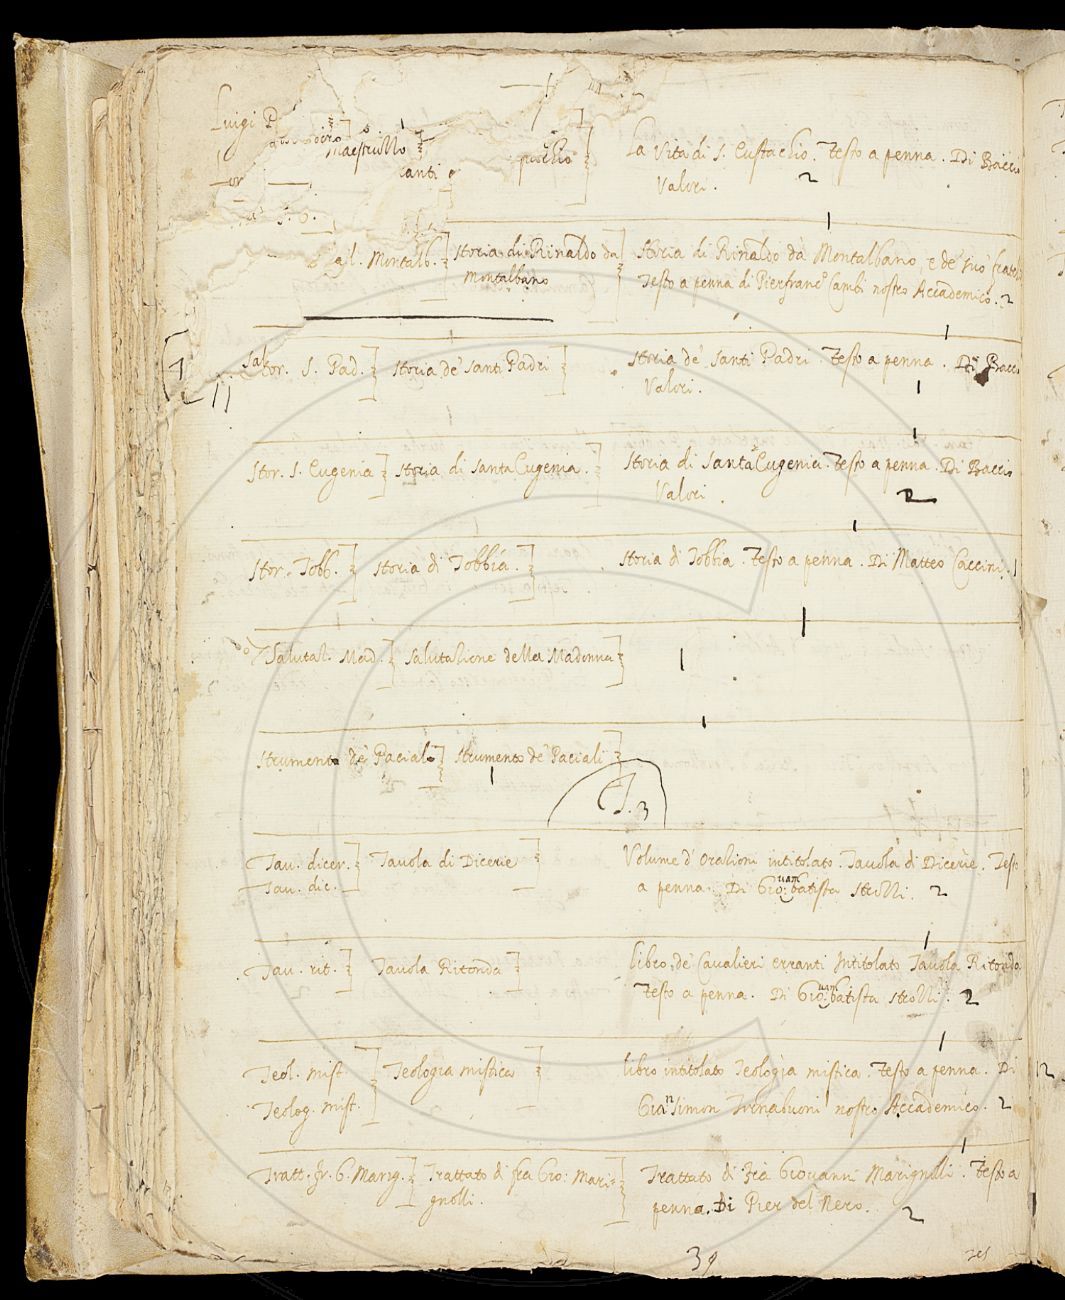 Luigi P
maestruzzo
canti
La Vita di S. Eustachio. Testo a penna. Di Baccio
Valori. 2
gil. Montalb. Storia di Rinaldo da
Montalbano
Storia di Rinaldo da Montalbano, e de suo fratelli
Testo a penna di Pierfranc.º Cambi nostro Accademico. 2
Stor. S. Pad. Storia de' Santi Padri
Storia de' Santi Padri. Testo a penna. Di Baccio
Valori.
Stor. S. Eugenia Storia di Santa Eugenia.
Storia di Santa Eugenia. Testo a penna. Di Baccio
Valori. 2
Stor. Tobb. Storia di Tobbia.
Storia di Tobbia. Testo a penna. Di Matteo Caccini.
Salutaz. Mad. Salutazione della Madonna
Strumento de' Paciali Strumento de' Paciali
T. 3
Tav. dicer. Tavola di Dicerie
Tav. dic.
Volume d' orazioni intitolato Tavola di Dicerie. Test
a penna. Di Giovambatista Strozzi. 2
Tav. rit. Tavola Ritonda
Libro de' Cavalieri erranti Intitolato Tavola Ritonda
Testo a penna. Di Giovambatista Strozzi. 2
Teol. Mist Teologia Mistica
Teolog. Mist.
Libro intitolato Teologia mistica. Testo a penna. Di
Gian Simon Tornabuoni nostro Accademico. 2
Tratt. fr. G. Marig. Trattato di fra Gio: Mari=
gnolli.
Trattato di Fra Giovanni Marignolli. Testo a
penna. Di Pier del Nero. 2
39